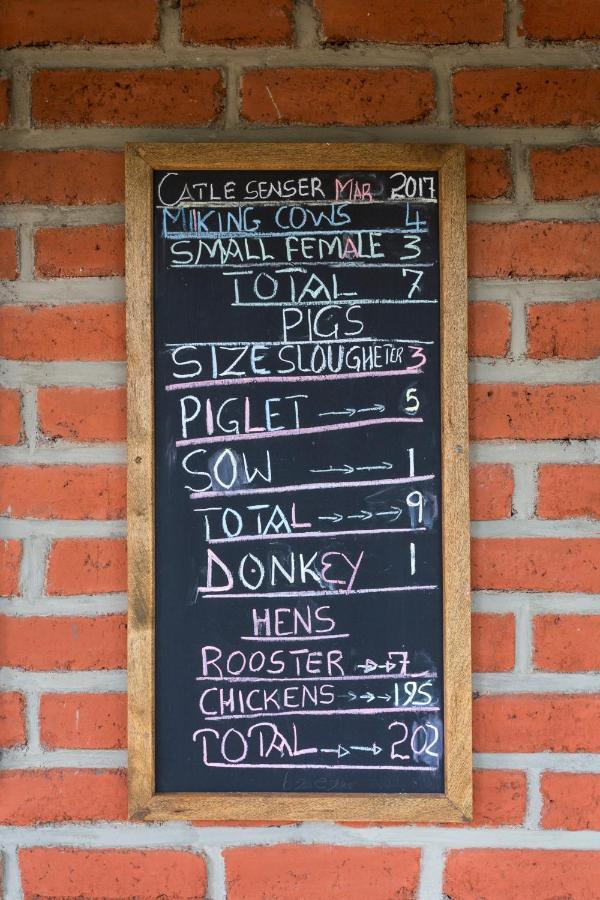 CATLE SENSER MAR 2017
MIKING COWS 4
SMALL FEMALE 3
TOTAL 7
PIGS
SIZE SLOUGHETER 3
PIGLET →→ 5
SOW →→ 1
TOTAL →→→ 9
DONKEY 1
HENS
ROOSTER →→ 7
CHICKENS →→→ 195
TOTAL →→ 202